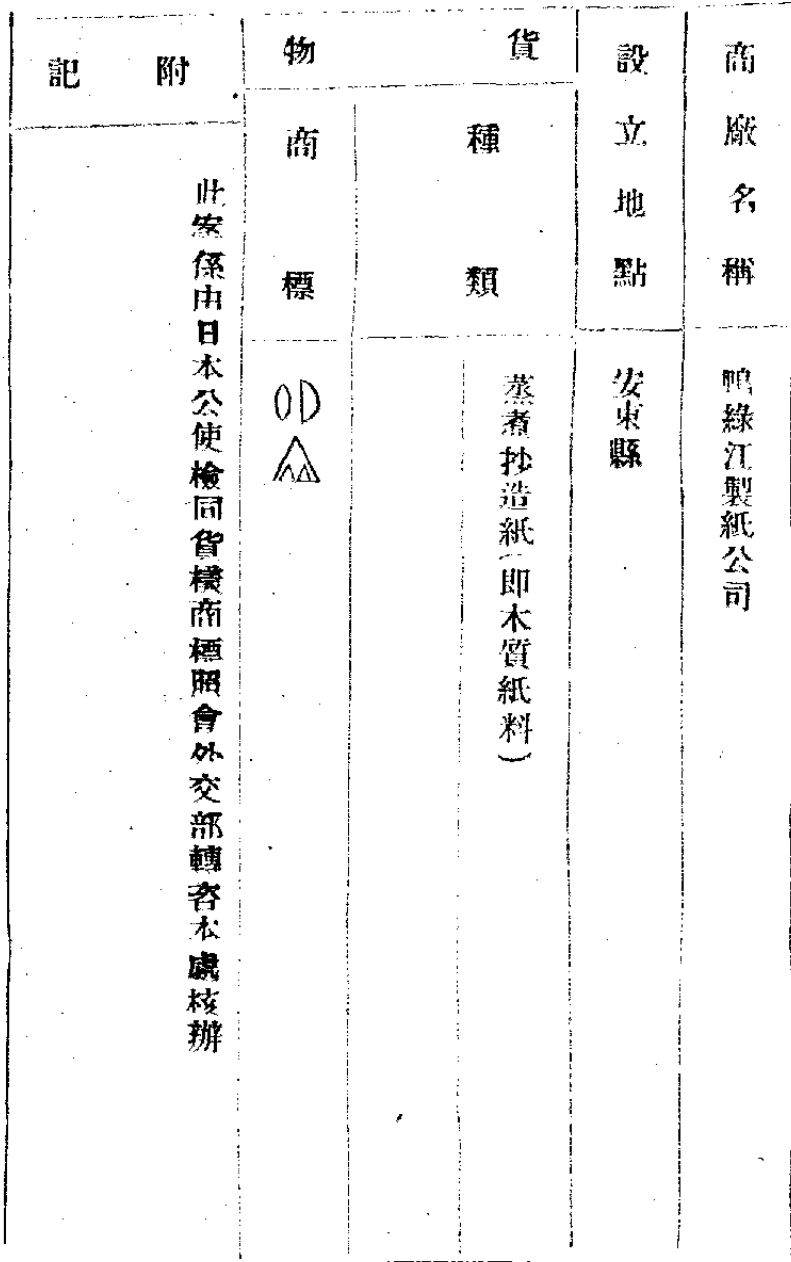 商廠名稱
鴨綠江製紙公司
設立地點
安東縣
貨物
種類
蒸煮抄造紙(即木質紙料)
商標
附記
此案係由日本公使檢同貨樣商標照會外交部轉咨本處核辦